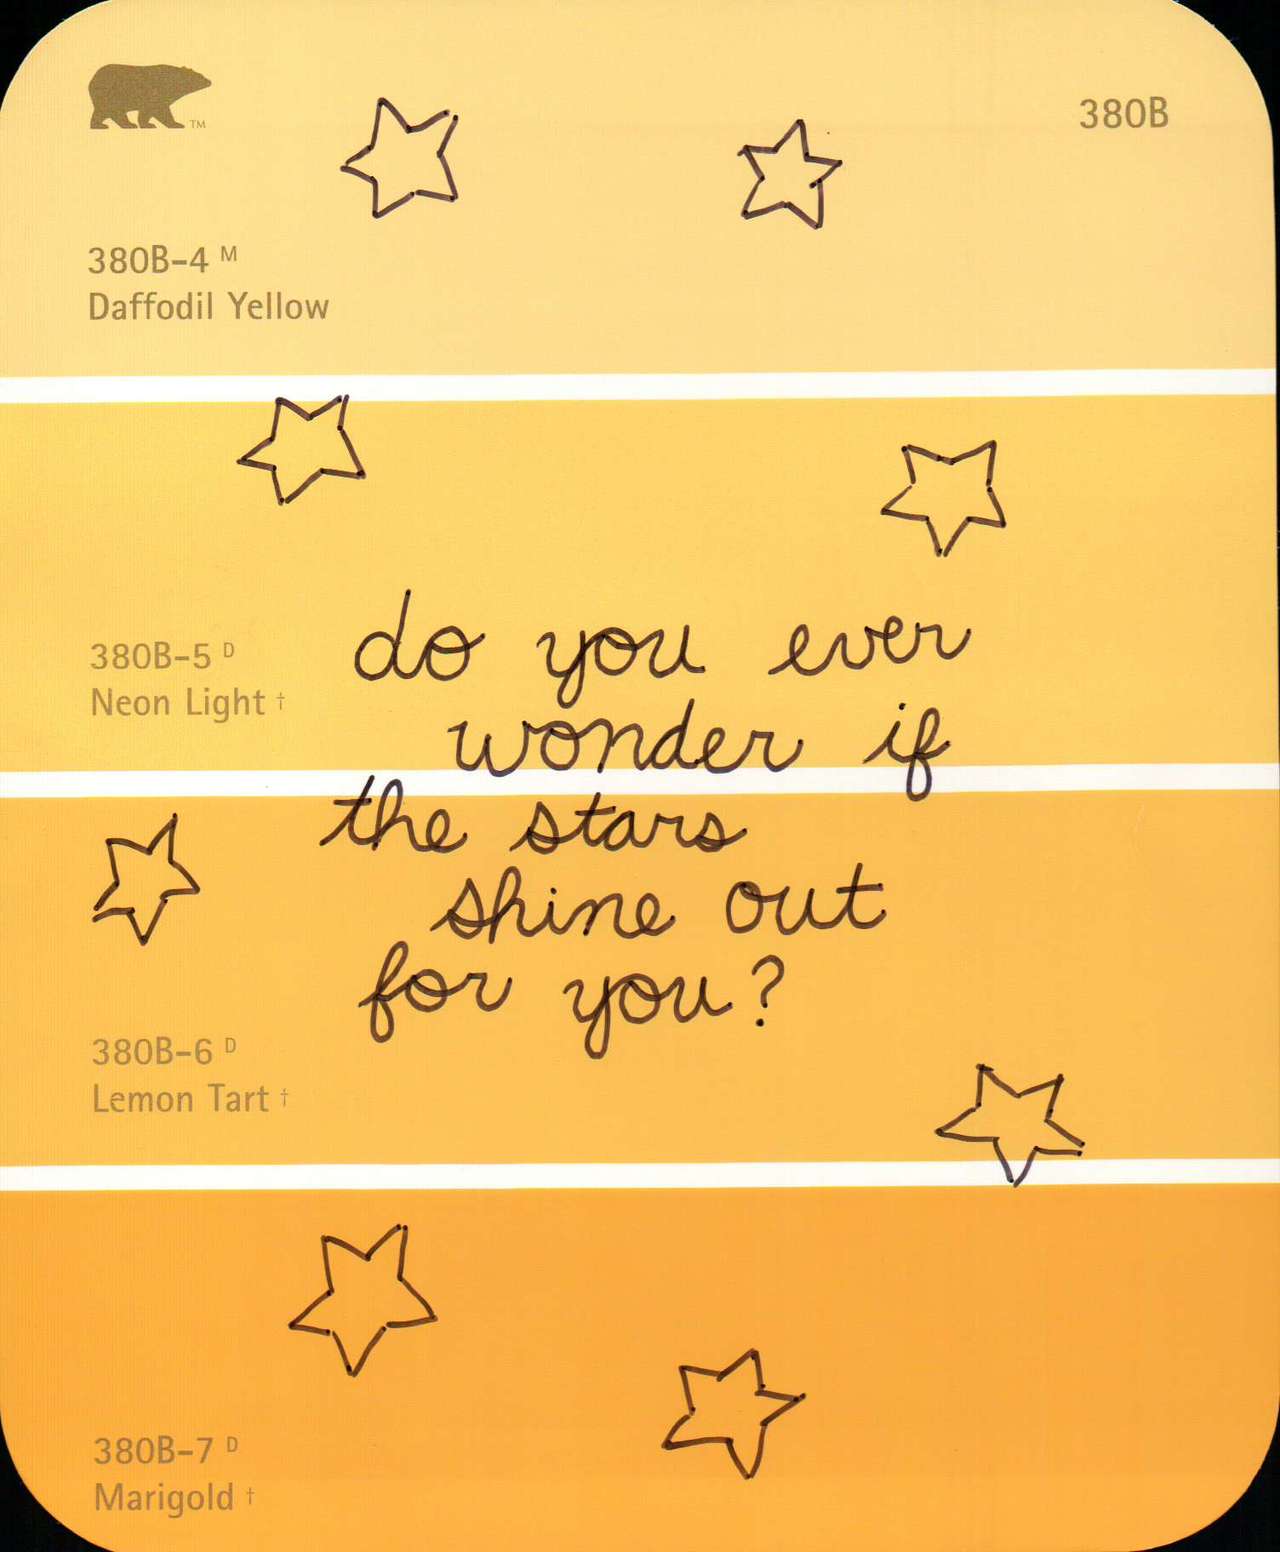 TM
380B
380B-4 M
Daffodil Yellow
380B-5 D
Neon Light †
do you ever
wonder if
the stars
shine out
for you?
380B-6 D
Lemon Tart †
380B-7 D
Marigold †